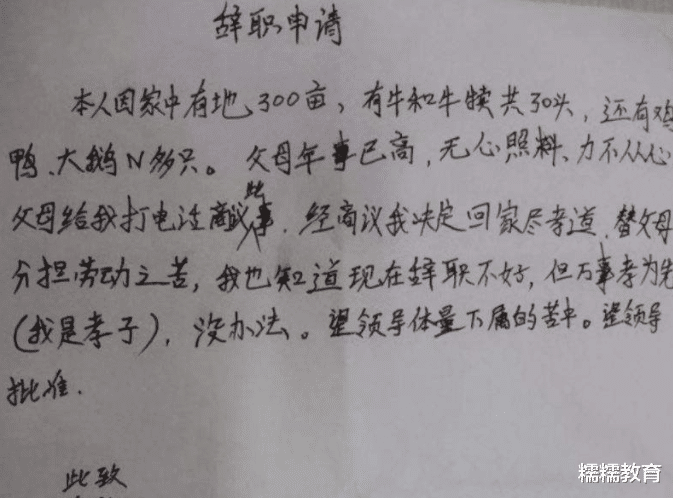 辞职申请
本人因家中有地300亩、有牛和牛犊共30头，还有鸡
鸭、大鹅N多只。父母年事已高，无心照料、力不从心
父母给我打电话商议此事，经商议我决定回家尽孝道，替父母
分担劳动之苦，我也知道现在辞职不好，但万事孝为先
(我是孝子)，没办法。望领导体量下属的苦中。望领导
批准.
此致
糯糯教育